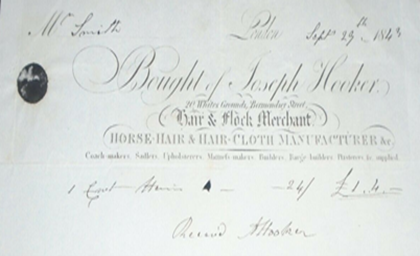 Mr Smith London Septr 29th 1843
Bought of Joseph Hooker,
20 Whites Grounds, Bermondsey Street,
Hair & Flock Merchant
HORSE-HAIR & HAIR-CLOTH MANUFACTURER &c
Coach-makers, Sadlers, Upholsterers, Mattrass-makers, Builders, Barge-builders Plasterers &c supplied.
1 Cwt 24/ £1.4.–
Received J Hooker